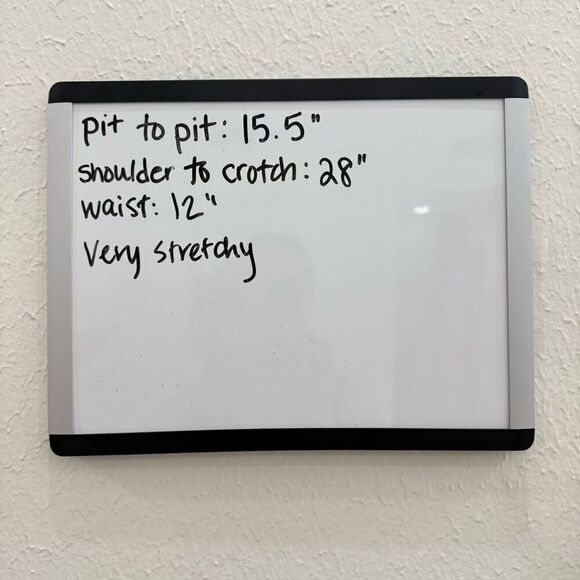 pit to pit: 15.5"
shoulder to crotch: 28"
waist: 12"
Very stretchy